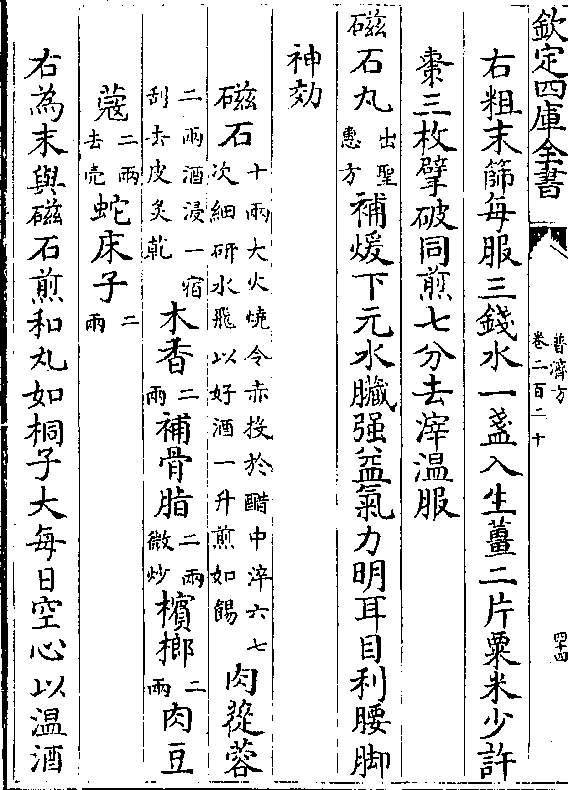 欽定四庫全書
普濟方
卷二百二十
四十四
右粗末篩每服三錢水一盞入生薑二片粟米少許
棗三枚擘破同煎七分去滓温服
磁石丸出聖惠方補煖下元水臟强益氣力明耳目利腰脚
神効
磁石十兩大火燒令赤投於醋中淬六七次細研水飛以好酒一升煎如餳肉蓯蓉
二兩酒浸一宿刮去皮炙乾木香二兩補骨脂二兩微炒檳榔二兩肉豆
蔻二兩去壳蛇床子二兩
右為末與磁石煎和丸如桐子大每日空心以温酒